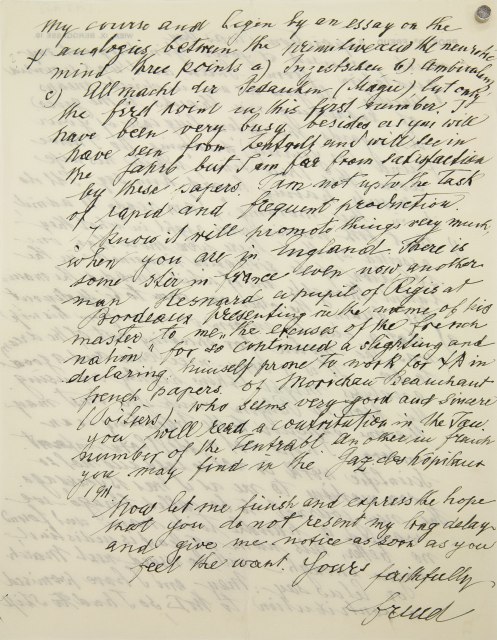 my course and begin by an essay on the
analogies between the primitive and the neurotic
mind three points a) Inzestscheu b) Ambivalenz
c) Allmacht der Gedanken (Magie) but only
the first point in this first number. I
have been very busy besides as you will
have seen from Zentralbl and will see in
the Jahrb but I am far from satisfaction
by these papers. I am not up to the task
of rapid and frequent production.
I know it will promote things very much
when you are in England. There is
some stir in France even now another
man Hesnard a pupil of Régis at
Bordeaux presenting in the name of his
master to me „the excuses of the french
nation" for so continued a slighting and
declaring himself prone to work for ΨA in
french papers. Of Morichau Beauchant
(Poitiers) who seems very good and sincere
you will read a contribution in the Jan.
number of the Zentralbl another in french
you may find in the Gaz des hôpitaux
1911
Now let me finish and express the hope
that you do not resent my long delay
and give me notice as soon as you
feel the want. Yours
faithfully
Freud